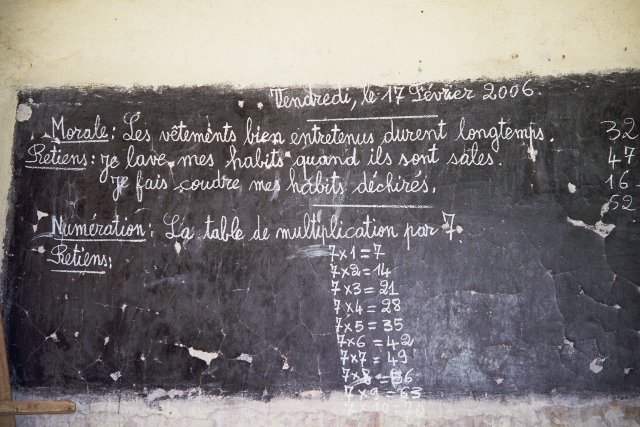 Vendredi, le 17 Février 2006.
Morale: Les vêtements bien entretenus durent longtemps.
Retiens: je lave mes habits quand ils sont sales.
Je fais coudre mes habits déchirés.
32
47
16
52
Numération: La table de multiplication par 7.
Retiens:
7×1=7
7×2=14
7×3=21
7×4=28
7×5=35
7×6=42
7×7=49
7×8=56
7×9=63
7×10=70